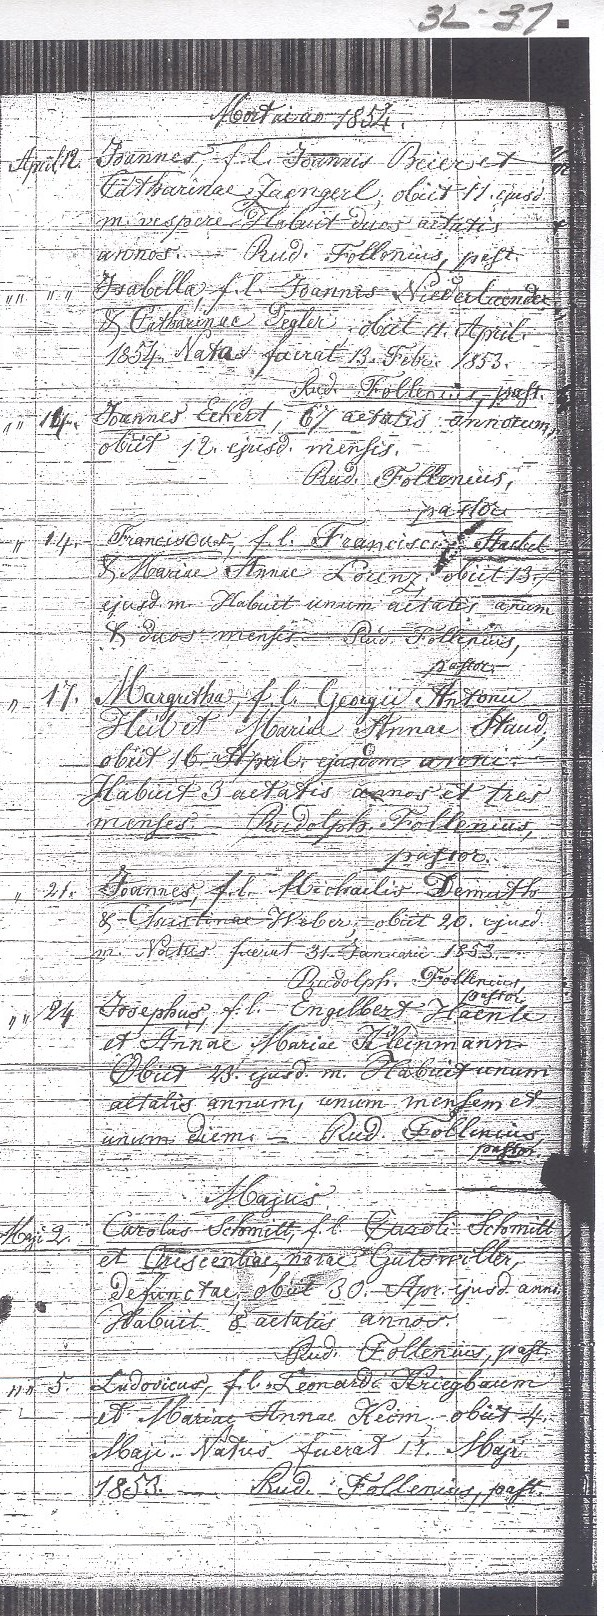 32-37.
1854.
April 12. Joannes, f. l. Joannis Beier et
Catharinae Zaengerl, obiit 11. ejusd.
m. vespere. Habuit duos aetatis
annos. — Rud. Follenius, past.
" " " " Isabella, f. l. Joannis Niederlaender
& Catharinae Degler obiit 11. April.
1854. Natus fuerat 13. Febr. 1853.
Rud. Follenius, past.
" " 14. Joannes Eckert, 67 aetatis annorum,
obiit 12. ejusd. mensis.
Rud. Follenius,
pastor
" 14. Franciscus, f. l. Francisci Stadel
& Mariae Annae Lorenz, obiit 13.
ejusd. m. Habuit unum aetatis anum
& duos menses. Rud. Follenius,
pastor.
" 17. Margretha, f. l. Georgii Antonii
Heil et Maria Annae Staud,
obiit 16. April. ejusdem anni.
Habuit 3 aetatis annos et tres
menses. Rudolph. Follenius,
pastor.
" 21. Joannes, f. l. Michaelis Demuth
& Christinae Weber, obiit 20. ejusd.
m. Natus fuerat 31. Januarii 1853.
Rudolph. Follenius,
pastor
" " 24 Josephus, f. l. Engelbert Haenle
et Annae Mariae Kleinmann.
Obiit 23. ejusd. m. Habuit unum
aetatis annum, unum mensem et
unum diem. — Rud. Follenius,
pastor
Majus
Maji 2. Carolus Schmitt, f. l. Caroli Schmitt
et Crescentiae, natae Gutswiller,
defunctae, obiit 30. Apr. ejusd. anni.
Habuit 8 aetatis annos
Rud. Follenius, past.
" " 5. Ludovicus, f. l. Leonardi Kriegbaum
et Mariae Annae Keim, obiit 4.
Maji. Natus fuerat 17. Maji
1853. — Rud. Follenius, past.